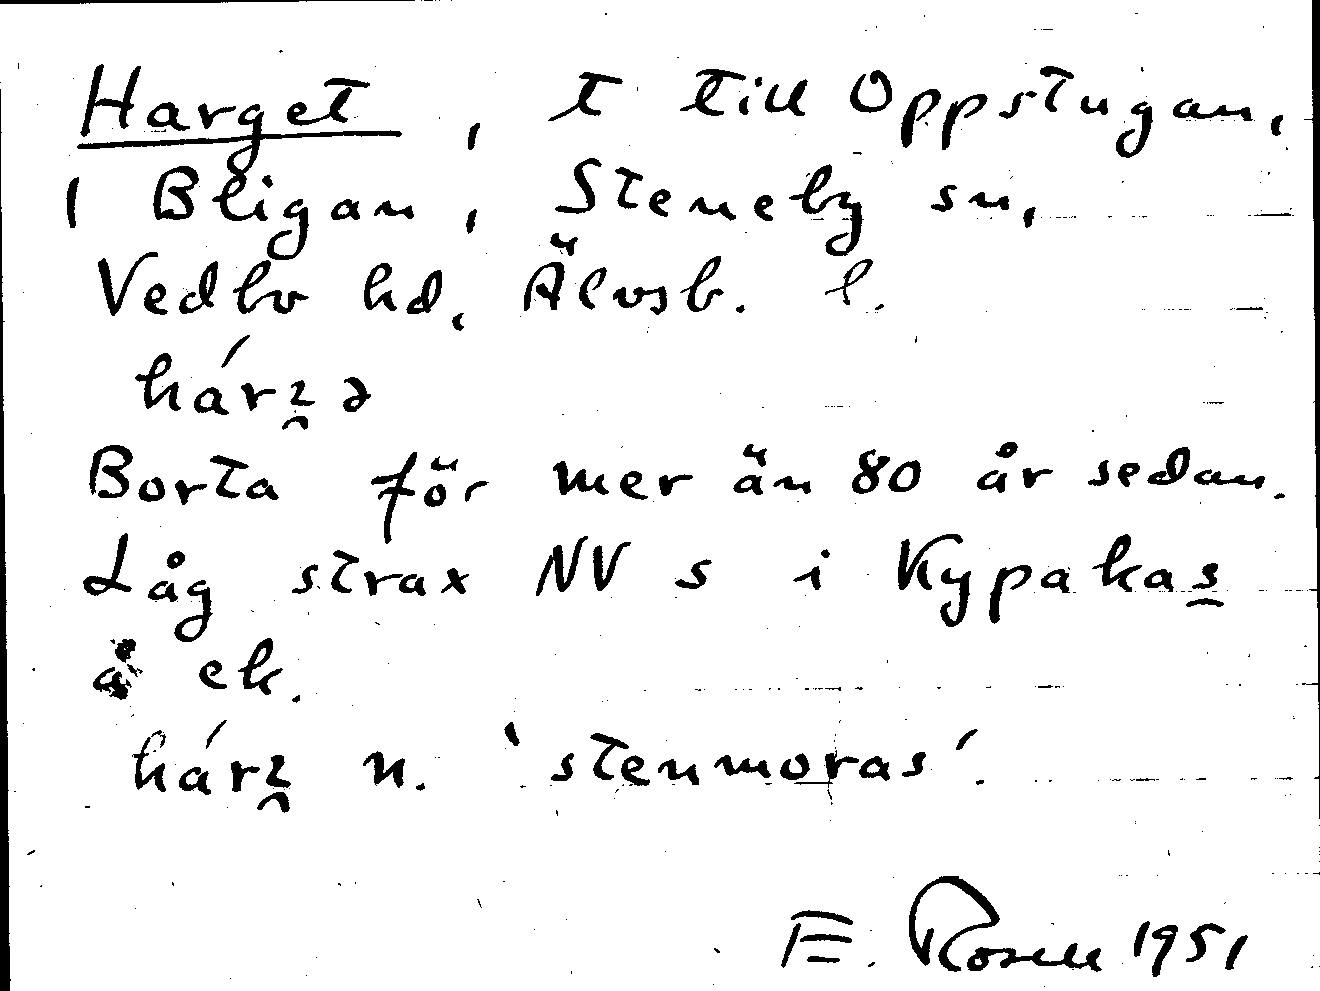 Harget, t till Oppstugan,
1 Bligan, Steneby sn,
Vedbo hd, Älvsb. l.
hárʒ̑ə
Borta för mer än 80 år sedan.
Låg strax NV s i Kypakas
å ek.
hárʒ̑ n. 'stenmoras'.
E. Rosell 1951